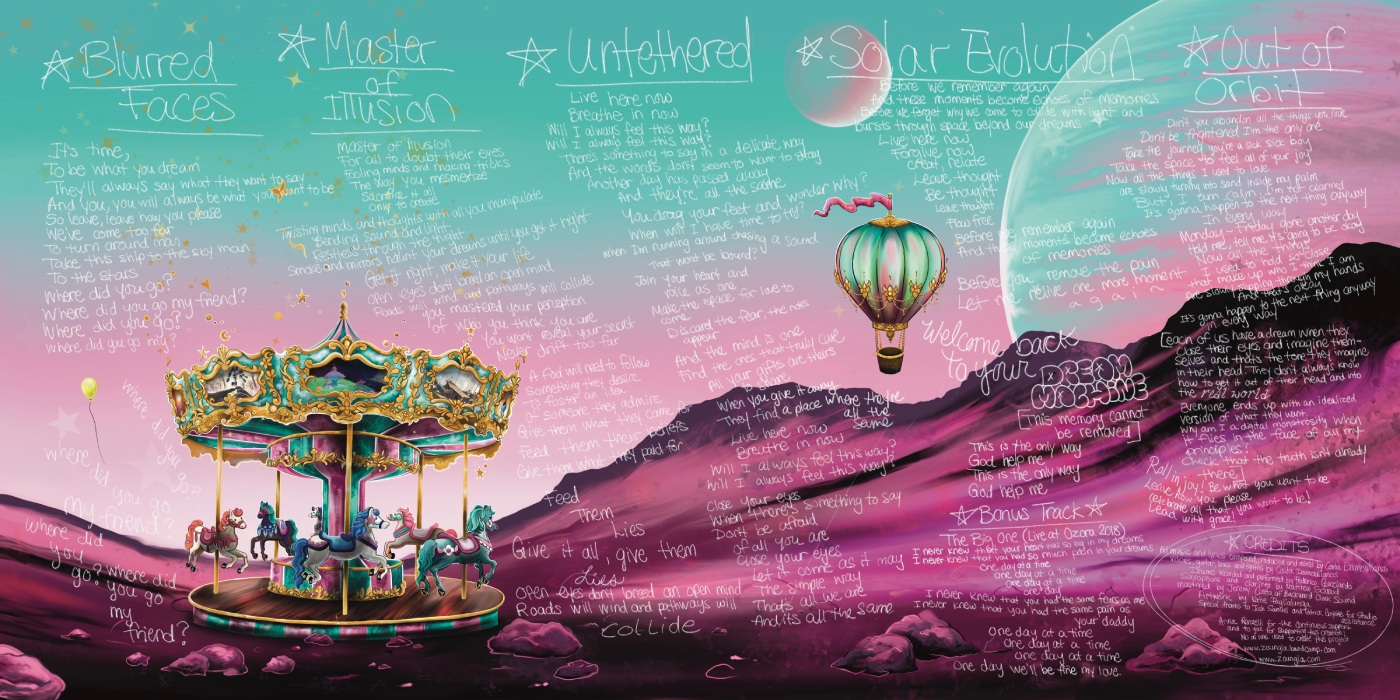 ☆ Blurred
Faces
It's time,
To be what you dream
They'll always say what they want to say
And you, you will always be what you want to be
So leave, leave how you please
We've come too far
To turn around man
Take this ship to the sky man
To the stars
Where did you go?
Where did you go my friend?
Where did you go?
Where did you go my?
Where did you go?
Where did you go
my friend?
Where did
you
go?
Where did
you go
my
friend?
☆ Master
of
Illusion
Master of illusion
For all to doubt their eyes
Fooling minds and making tricks
The way you mesmerize
Sacrifice it all
Only to create
Twisting minds and hearts with all you manipulate
Bending time and light,
Restless through the night
Smoke and mirrors haunt your dreams until you get it right
Get it right, make it your life
open eyes don't need an open mind
Roads will wind and pathways will collide
you mastered your perception
of who you think you are
You wont reveal your secret
Never drift too far
A God will need to follow
Something they desire
To foster an idea
of someone they admire
Give them what they came for
Feed them their beliefs
Give them what they paid for
Feed
Them
Lies
Give it all, give them
Lies
open eyes don't need an open mind
Roads will wind and pathways will
collide
☆ Untethered
Live here now
Breathe in now
Will I always feel this way?
Will I always feel this way?
There's something to say in a delicate way
And the words don't seem to want to stay
Another day has passed away
And they're all the same
You drag your feet and wonder why?
When will I have time to try?
When I'm running around chasing a sound
That wont be bound?
Join your heart and
voice as one
Make the space for love to
come
Discard the fear, the notes
appear
And the mind is one
Find the ones that truly care
All your gifts are theirs
When you give it away
They find a place where they're
all the
same
Live here now
Breathe in now
Will I always feel this way?
Will I always feel this way?
Close your eyes
When there's something to say
Don't be afraid
of all you are
Close your eyes
Let it come as it may
The simple way
That's all we are
And its all the same
☆ Solar Evolution
Before we remember again
And these moments become echoes of memories
Before we forget why we came to collide with light and
bursts through space beyond our dreams
Live here now
Forgive now
Great relate
Leave thought
Be thought
Leave thought
Too free
Before we remember again
And these moments become echoes
of memories
Before you remove the pain
Let me relive one more moment
again
Welcome back
to your DREAM
MACHINE
[This memory cannot
be removed]
This is the only way
God help me
This is the only way
God help me
☆ Bonus Track ☆
The Big One (Live at Ozora 2018)
I never knew that your heart was so big in my dreams
I never knew that you had so much pain in your dreams
one day at a time
one day at a time
one day at a time
one day
I never knew that you had the same fears as me
I never knew that you had the same pain as
your daddy
One day at a time
One day at a time
One day at a time
One day we'll be fine my love.
☆ Out of
Orbit
Don't you abandon all the things you love
Don't be frightened I'm the only one
Take the journey you're a sick sick boy
Take the space to feel all of your joy
Now all the things I used to love
are slowly turning into sand inside my palm
But, I turn again, I'm not alarmed
It's gonna happen to the next thing anyway
In every way
Monday - Friday gone another day
told me, tell me it's going to be okay
Now all the things
I used to hold so close
I make up who I think I am
are slowly slipping through my hands
And that's okay
It's gonna happen to the next thing anyway
in every way
[Each of us have a dream when they
close their eyes and imagine them-
selves and that's the tone they imagine
in their head. They don't always know
how to get it out of their head and into
the real world.
Everyone ends up with an idealized
version of what they want.
Why am I a digital monstrosity when
it flies in the face of all my
principles?
Check that the truth isn't already
there]
Rally in joy! Be what you want to be
Leave how you please
Celebrate all that you want to be!
Lead with grace!
☆ CREDITS
Saxophone and Clarinet by Federico
Artwork by
Anna for the continuous support
and to you for supporting this creation!
No AI was used to create this project
www.zoungla.bandcamp.com
www.zoungla.com